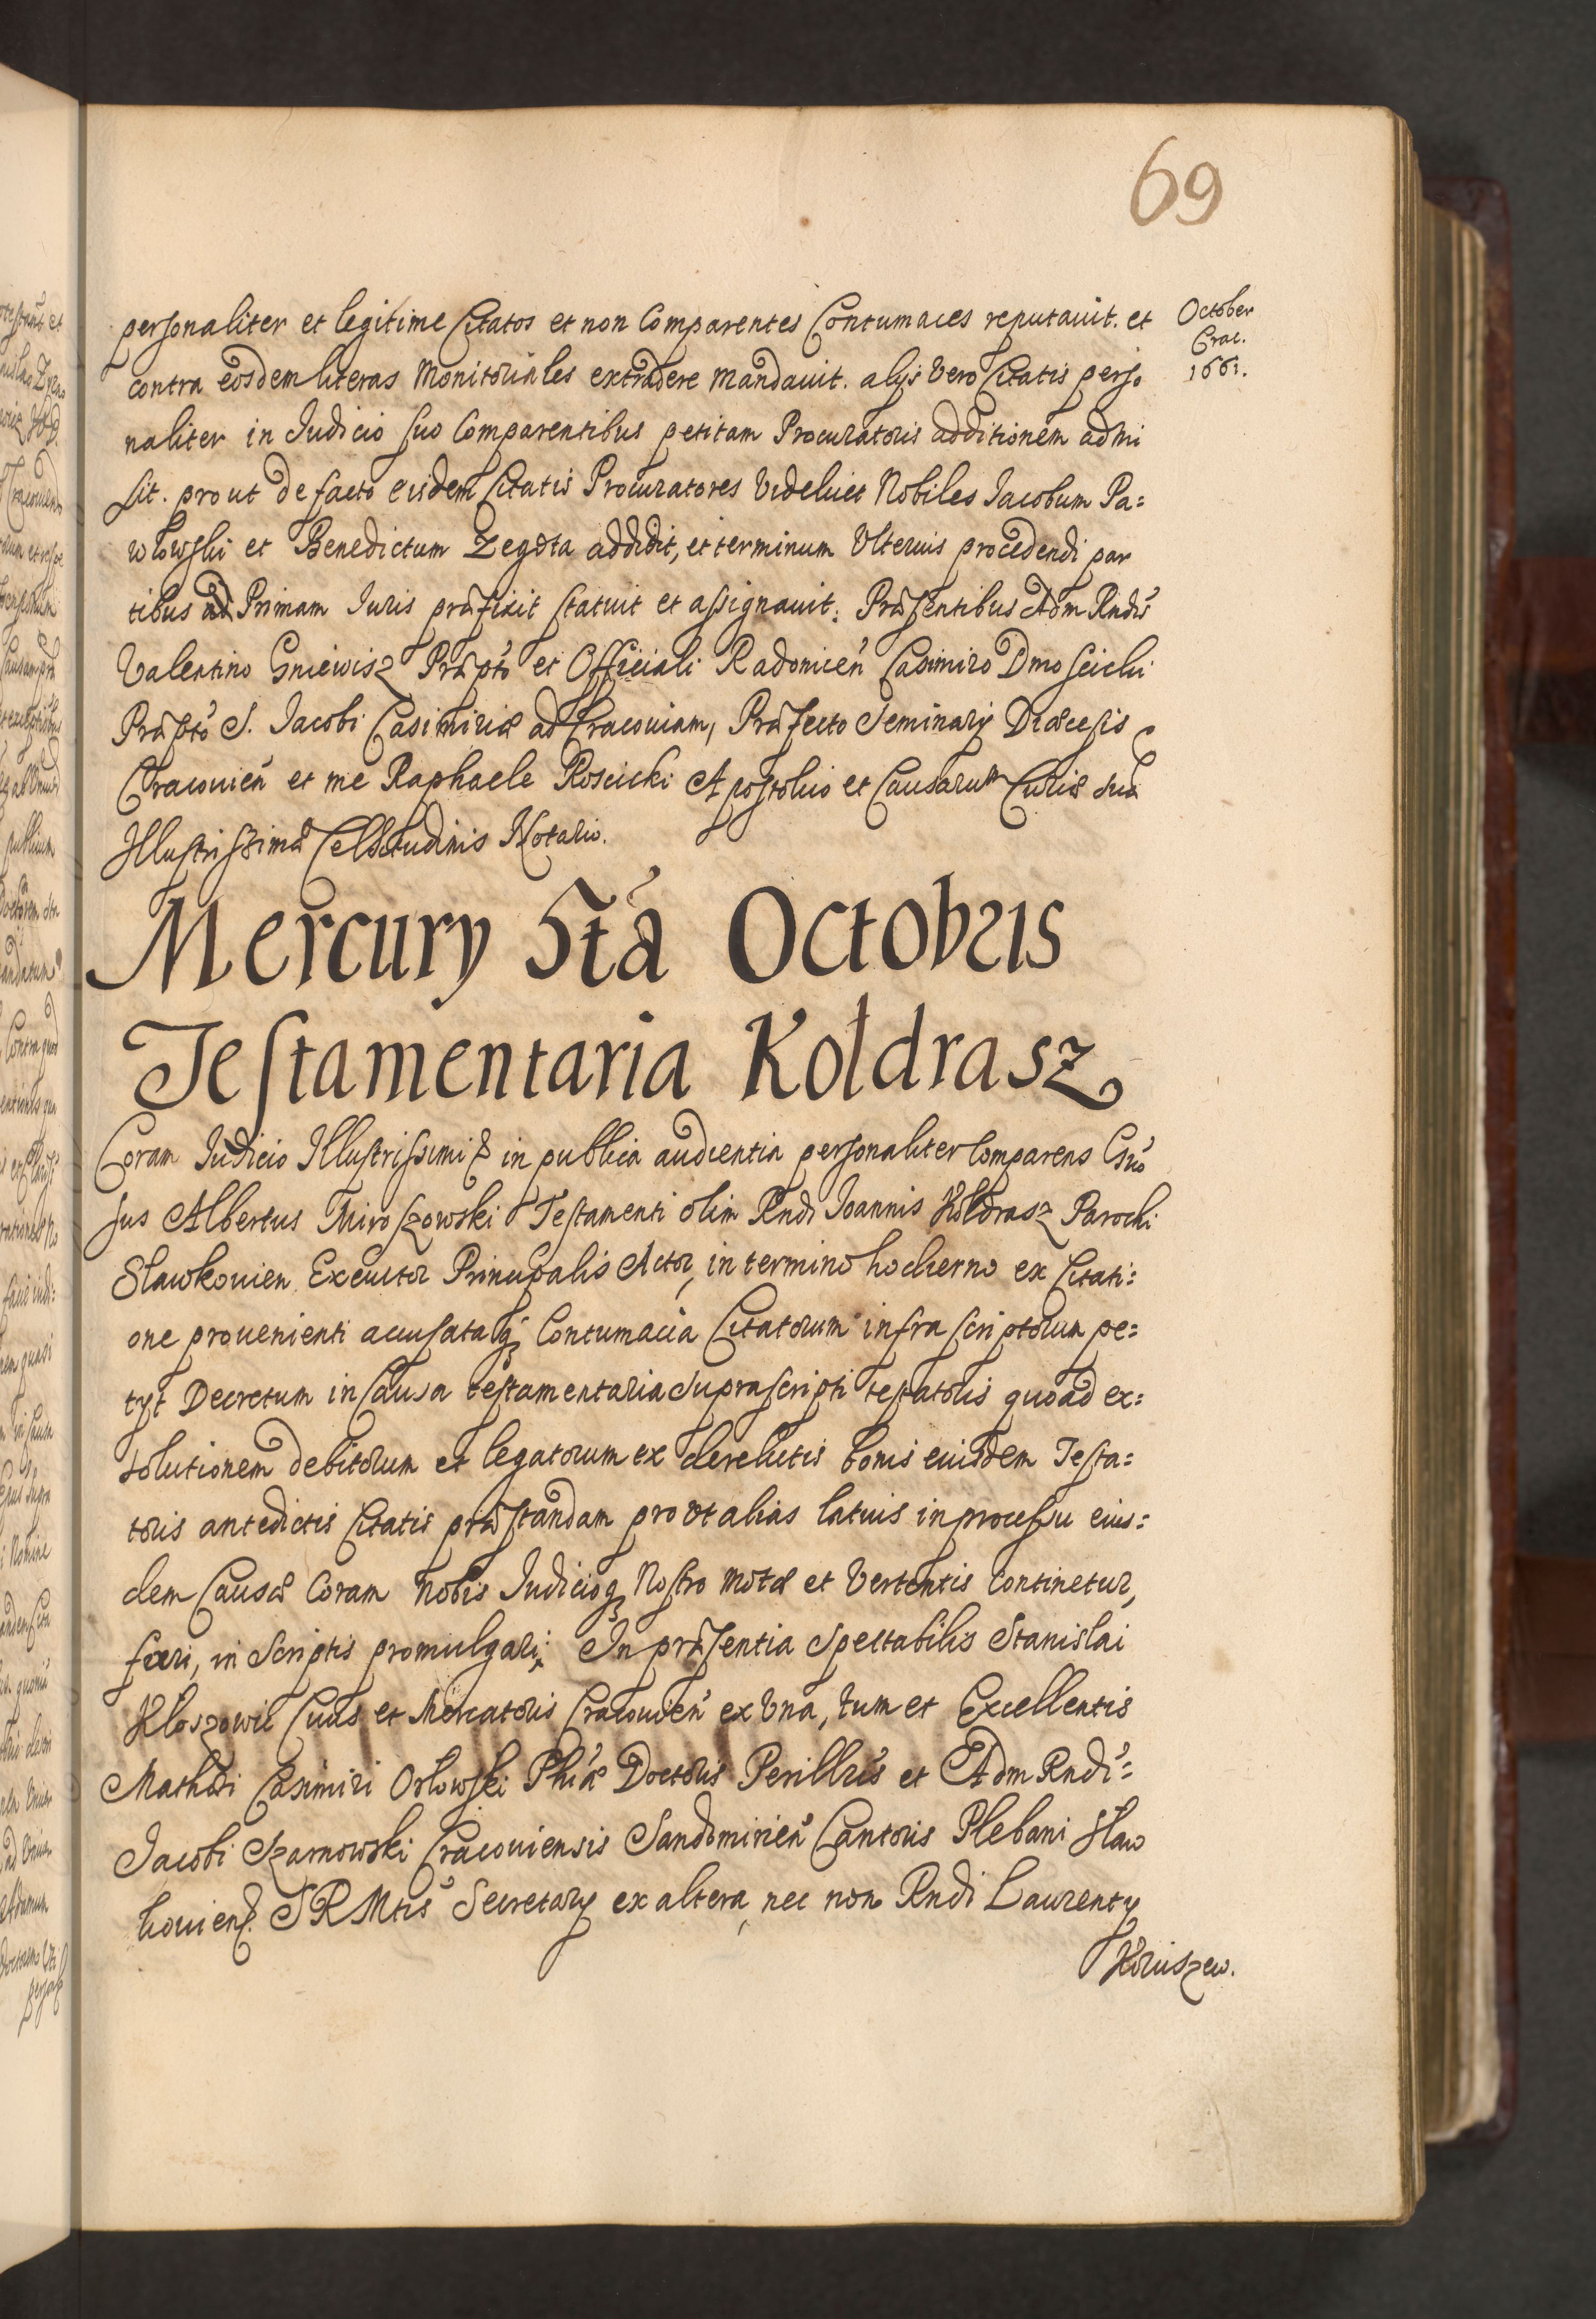 69
October
Crac.
1661.
personaliter et legitime Citatos et non Comparentes Contumaces reputauit. et
contra eosdem literas Monitoriales extradere mandauit. alijs Vero Citatis perso
naliter in Judicio suo Comparentibus petitam Procuratoris additionem admi
sit. prout de facto eisdem Citatis Procuratores Videlicet Nobiles Iacobum Pa=
wlowski et Benedictum Zegota addidit, et terminum Vlterius procedendi par
tibus ad Primam Iuris præfixit statuit et assignauit. Præsentibus Adm Rndis
Valentino Gniewisz Præpto et Officiali Radomien Casimiro Dmoseicki
Præpto S. Iacobi Casimiriæ ad Cracouiam, Præfecto Seminarij Diæcesis
Cracouien et me Raphaele Roscicki Apostolico et Causarum Curiæ suæ
Illustrissimæ Celsitudinis Notario.
Mercury 5ta Octobris
Testamentaria Kołdrasz
Coram Iudicio Illustrissimi & in publica audientia personaliter Comparens Gno
sus Albertus Miroszowski Testamenti olim Rndi Ioannis Kołdrasz Parochi
Slawkouien Executor Principalis Actor, in termino hodierno ex Citati=
one prouenienti accusataq; Contumacia Citatorum infra scriptorum pe=
tyt Decretum in Causa testamentaria suprascripti testatoris quoad ex=
solutionem debitorum et legatorum ex derelictis bonis eiusdem Testa=
toris antedictis Citatis præstandam prout alias latius in processu eius=
dem Causæ Coram Nobis Iudicioq; Nostro motæ et Vertentis Continetur,
ferri, in Scriptis promulgari; In præsentia Spectabilis Stanislai
Kloszowic Ciuis et Mercatoris Cracouien ex Vna, tum et Excellentis
Mathæi Casimiri Orlowski Phiæ Doctoris Perillris et Adm Rndi=
Iacobi Czarnowski Cracouiensis Sandomirien Cantoris Plebani Slaw
kouien. S R Mtis Secretarij ex altera, nec non Rndi Laurenty
Koruszew.